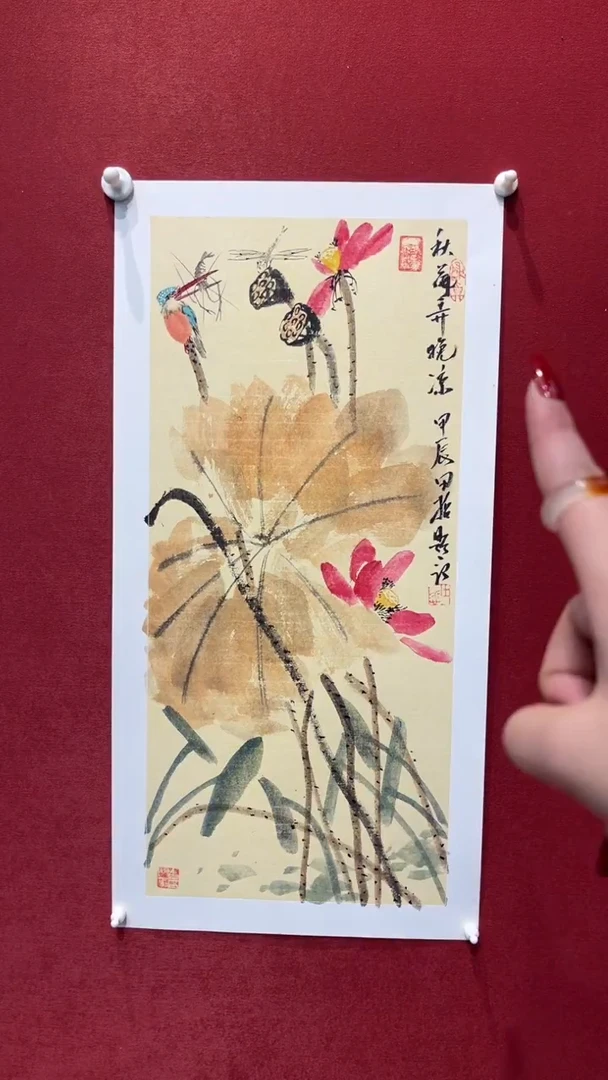 秋荷弄晚凉 甲辰田 题记